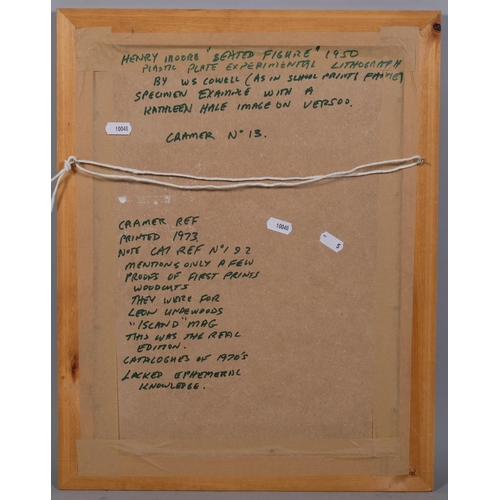 HENRY MOORE "SEATED FIGURE" 1950
PLASTIC PLATE EXPERIMENTAL LITHOGRAPH
BY WS COWELL (AS IN SCHOOL PRINTS FAME)
SPECIMEN EXAMPLE WITH A
KATHLEEN HALE IMAGE ON VERSOO.
10040
CRAMER No 13.
CRAMER REF
PRINTED 1973
NOTE CAT REF No 1 & 2
MENTIONS ONLY A FEW
PROOFS OF FIRST PRINTS
WOODCUTS
THEY WERE FOR
LEON UNDEWOODS
"ISLAND" MAG
THIS WAS THE REAL
EDITION.
CATALOGUES OF 1970'S
LACKED EPHEMERAL
KNOWLEDGE.
10040
5